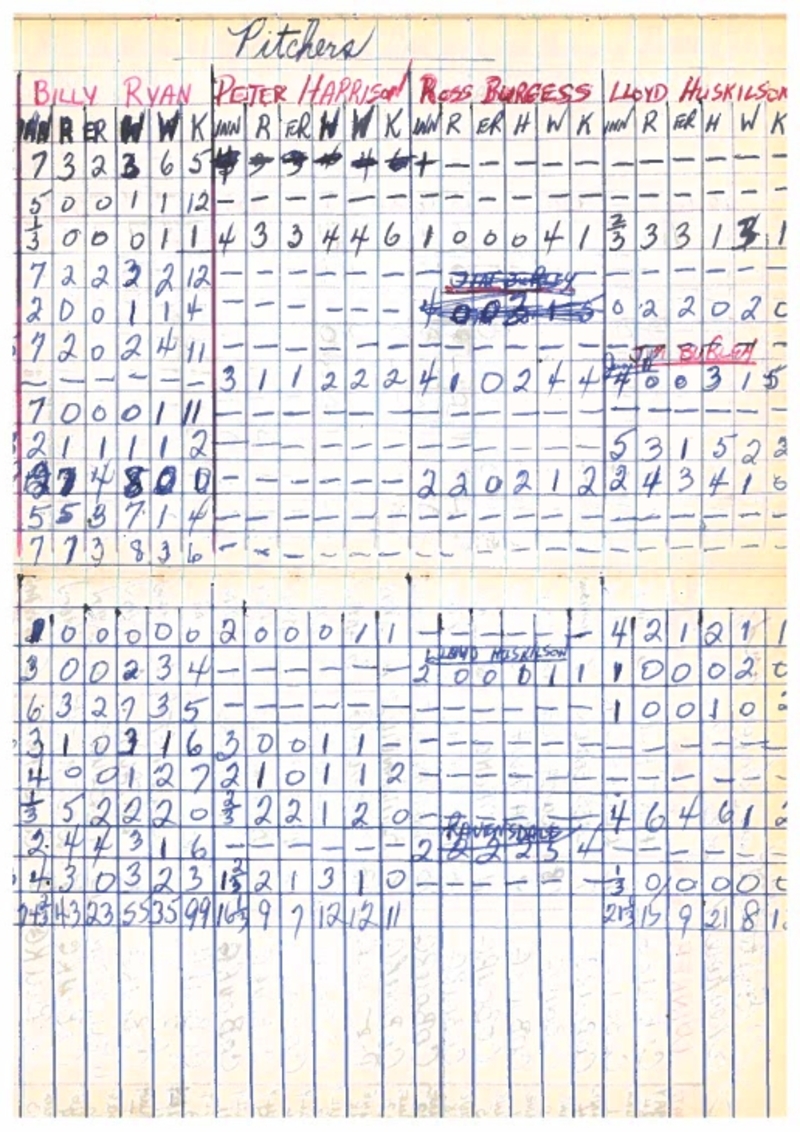 Pitchers
BILLY RYAN PETER HARRISON ROSS BURGESS LLOYD HUSKILSON
INN R ER H W K INN R ER H W K INN R ER H W K INN R ER H W K
7 3 2 3 6 5 — — — — —
5 0 0 1 1 12 — — — — — — — — — — — — — — — — — —
1/3 0 0 0 1 1 4 3 3 4 4 6 1 0 0 0 4 1 2/3 3 3 1 3 1
7 2 2 3 2 12 — — — — — — JIM BURLEY — — — — — —
2 0 0 1 1 4 — — — — — — 4 0 0 2 1 5 0 2 2 0 2 0
7 2 0 2 4 11 — — — — — — — — — — — — JIM BURLEY
— — — — — — 3 1 1 2 2 2 4 1 0 2 4 4 4 0 0 3 1 5
7 0 0 0 1 11 — — — — — — — — — — — — — — — — — —
2 1 1 1 1 2 — — — — — — — — — — — — 5 3 1 5 2 2
7 4 8 0 0 — — — — — — 2 2 0 2 1 2 2 4 3 4 1 0
5 5 3 7 1 4 — — — — — — — — — — — — — — — — — —
7 7 3 8 3 6 — — — — — — — — — — — — — — — — — —
1 0 0 0 0 0 2 0 0 0 1 1 — — — — — — 4 2 1 2 1 1
LLOYD HUSKILSON
3 0 0 2 3 4 — — — — — — 2 0 0 0 1 1 1 0 0 0 2 0
6 3 2 7 3 5 — — — — — — — — — — — — 1 0 0 1 0
3 1 0 3 1 6 3 0 0 1 1 — — — — — — — — — — — — —
4 0 0 1 2 7 2 1 0 1 1 2 — — — — — — — — — — — —
1/3 5 2 2 2 0 2/3 2 2 1 2 0 — — — — — — 4 6 4 6 1 2
RAVENSDALE
2 4 4 3 1 6 — — — — — — 2 2 2 2 5 4
4 3 0 3 2 3 1 2/3 2 1 3 1 0 — — — — — — 1/3 0 0 0 0 0
74 2/3 43 23 55 35 99 16 1/3 9 7 12 12 11 21 1/3 15 9 21 8